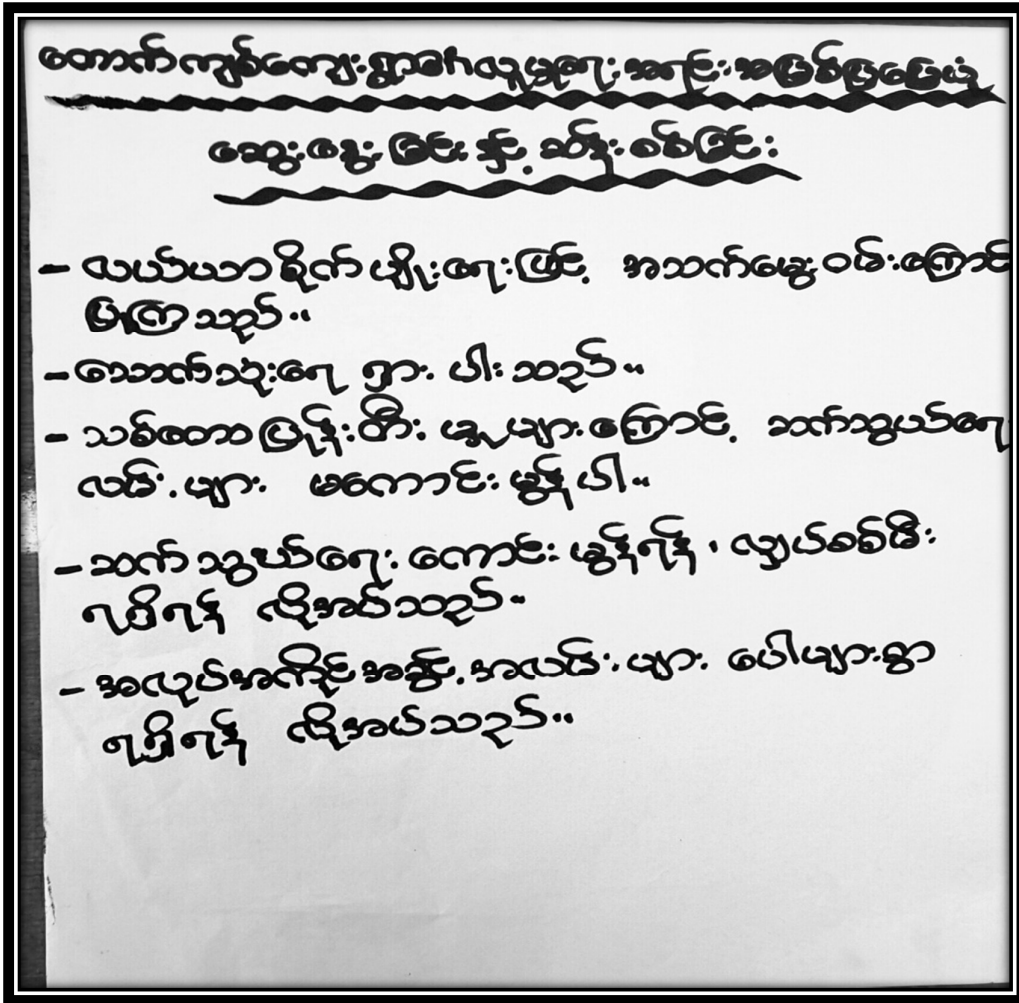 တောက်ကျစ်ကျေးရွာ၏လူမှုရေးအရင်းအမြစ်ပြမြေပုံ
ဆွေးနွေးခြင်းနှင့် ဆန်းစစ်ခြင်း
- လယ်ယာစိုက်ပျိုးရေးဖြင့် အသက်မွေးဝမ်းကြောင်း
ပြုကြသည်။
- သောက်သုံးရေ ရှားပါးသည်။
- သစ်တောပြုန်းတီးမှုများကြောင့် ဆက်သွယ်ရေး
လမ်းများ မကောင်းမွန်ပါ။
- ဆက်သွယ်ရေးကောင်းမွန်ရန်၊ လျှပ်စစ်မီး
ရရှိရန် လိုအပ်သည်။
- အလုပ်အကိုင်အခွင့်အလမ်းများ ပေါများစွာ
ရရှိရန် လိုအပ်သည်။